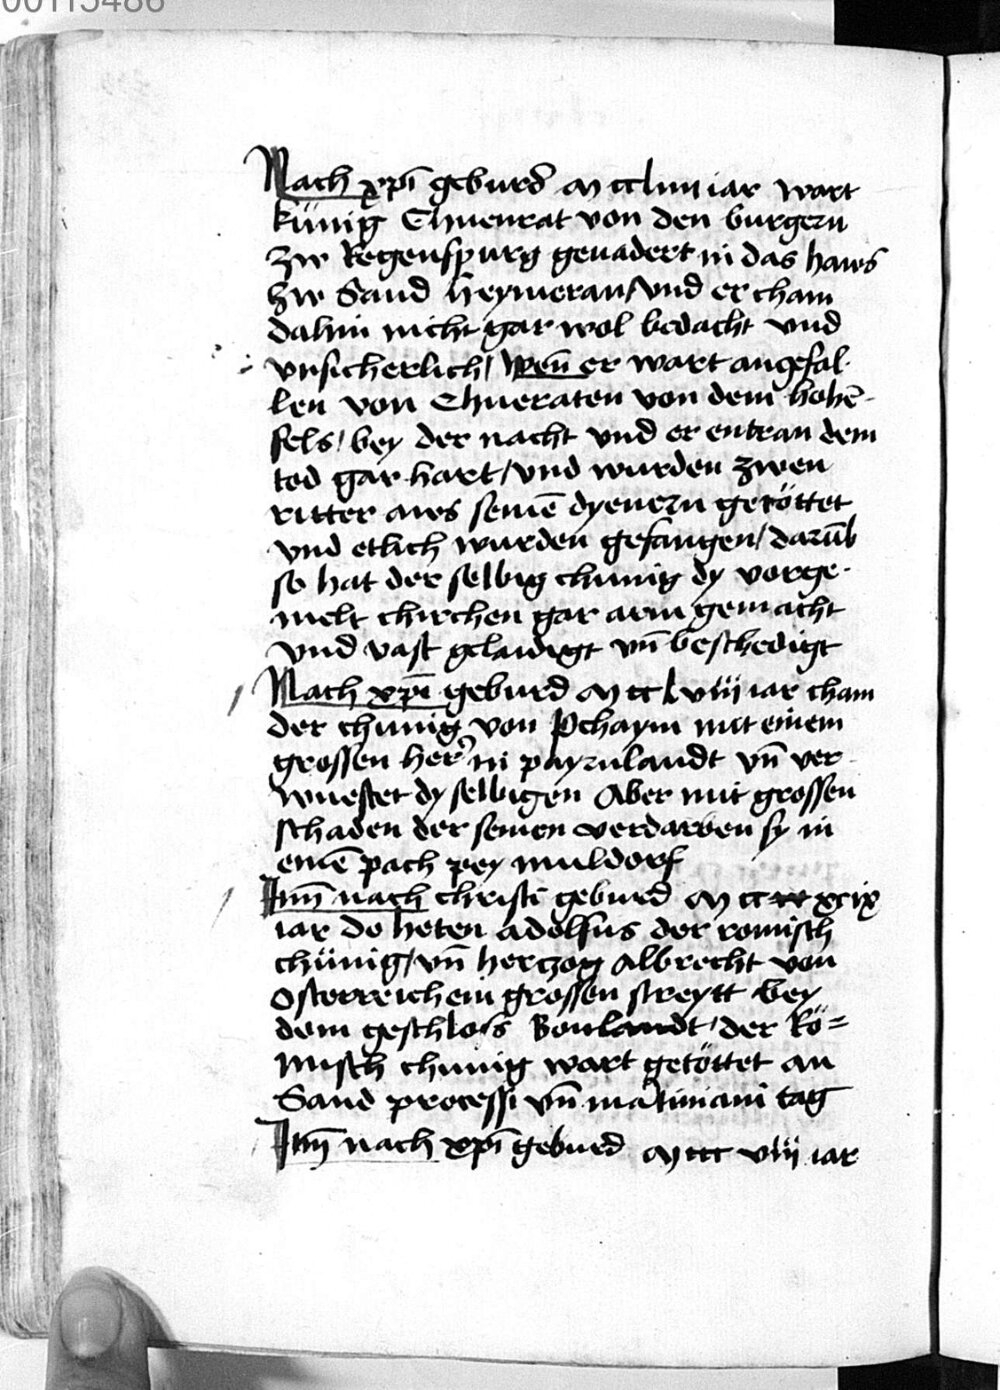 00115486
Nach xp̄i geburd M cc liiii iar wart
künig Chuenrat von den burgern
zw Regenspurg geuadert in das haws
zw Sand Heymeran / vnd er cham
dahin nicht gar wol bedacht vnd
vnsicherlich / Wen̄ er wart angefal-
len von Chueraten von dem hohē-
fels / bey der nacht vnd er entran dem
tod gar hart / vnd wurden zwen
ritter aws seinē dyenern getöttet
vnd etlich wurden gefangen / darūb
so hat der selbig chunig dy vorge-
melt chirchen gar arm gemacht
vnd vast gelaidigt vn̄ beschedigt
Nach xp̄i geburd M cc lviij iar cham
der chunig von Pehaym mit einem
grossen her in payrnlandt vn̄ ver-
wuestet dy selbigen Aber mit grossen
schaden der seinen verdarben sy in
einē pach pey muldorf
Itm̄ nach christi geburd M cc xcix
iar do heten adolfus der romisch
chünig / vn̄ herczog Albrecht von
Osterreich ein grossen streytt bey
dem geschloss Bonlandt / der Rö=
misch chunig wart getöttet an
Sand processi vn̄ martiniani tag
Itm̄ nach xp̄i geburd M ccc viij iar